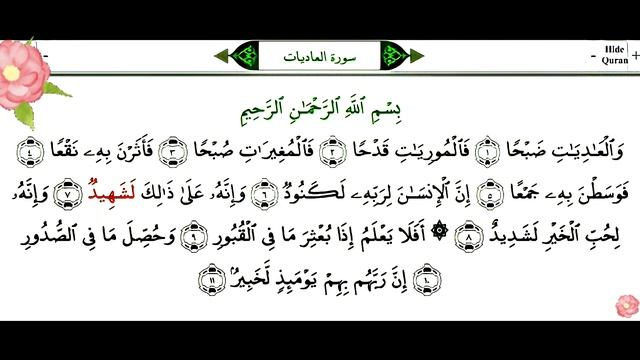 Hide
Quran
- - +
سورة العاديات
بِسْمِ ٱللَّهِ ٱلرَّحْمَـٰنِ ٱلرَّحِيمِ
وَٱلْعَـٰدِيَـٰتِ ضَبْحًا ١ فَٱلْمُورِيَـٰتِ قَدْحًا ٢ فَٱلْمُغِيرَٰتِ صُبْحًا ٣ فَأَثَرْنَ بِهِۦ نَقْعًا ٤
فَوَسَطْنَ بِهِۦ جَمْعًا ٥ إِنَّ ٱلْإِنسَـٰنَ لِرَبِّهِۦ لَكَنُودٌ ٦ وَإِنَّهُۥ عَلَىٰ ذَٰلِكَ لَشَهِيدٌ ٧ وَإِنَّهُۥ
لِحُبِّ ٱلْخَيْرِ لَشَدِيدٌ ٨ ۞ أَفَلَا يَعْلَمُ إِذَا بُعْثِرَ مَا فِى ٱلْقُبُورِ ٩ وَحُصِّلَ مَا فِى ٱلصُّدُورِ
١٠ إِنَّ رَبَّهُم بِهِمْ يَوْمَئِذٍ لَّخَبِيرٌۢ ١١